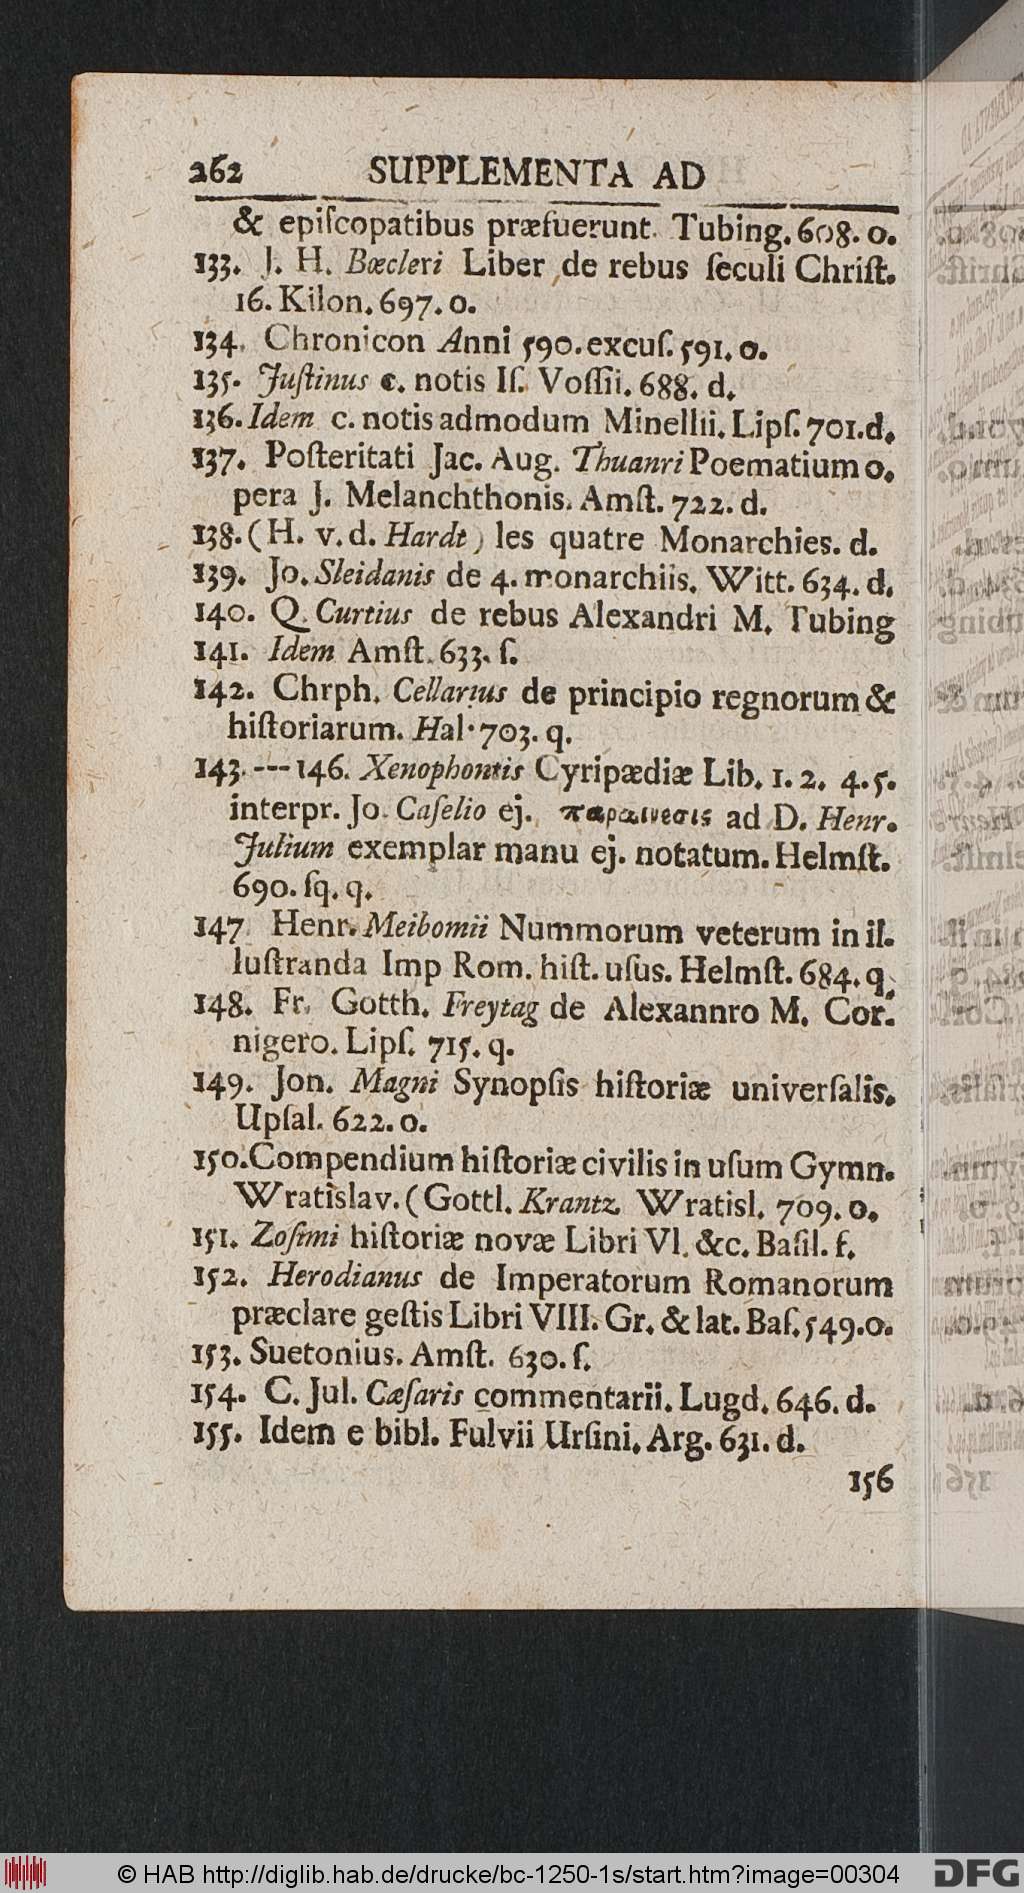 262 SUPPLEMENTA AD
& epiſcopatibus præfuerunt. Tubing. 608. o.
133. J. H. Bœcleri Liber de rebus ſeculi Chriſt.
16. Kilon. 697. o.
134. Chronicon Anni 590. excuſ. 591. o.
135. Juſtinus c. notis Iſ. Voſſii. 688. d.
136. Idem c. notis admodum Minellii. Lipſ. 701. d.
137. Poſteritati Jac. Aug. Thuanri Poematium o.
pera J. Melanchthonis. Amſt. 722. d.
138. (H. v. d. Hardt) les quatre Monarchies. d.
139. Jo. Sleidanis de 4. monarchiis. Witt. 634. d.
140. Q. Curtius de rebus Alexandri M. Tubing
141. Idem Amſt. 633. ſ.
142. Chrph. Cellarius de principio regnorum &
hiſtoriarum. Hal. 703. q.
143. --- 146. Xenophontis Cyripædiæ Lib. 1. 2. 4. 5.
interpr. Jo. Caſelio ej. παραινεσις ad D. Henr.
Julium exemplar manu ej. notatum. Helmſt.
690. ſq. q.
147 Henr. Meibomii Nummorum veterum in il.
luſtranda Imp Rom. hiſt. uſus. Helmſt. 684. q.
148. Fr. Gotth. Freytag de Alexannro M. Cor.
nigero. Lipſ. 715. q.
149. Jon. Magni Synopſis hiſtoriæ univerſalis.
Upſal. 622. o.
150. Compendium hiſtoriæ civilis in uſum Gymn.
Wratislav. (Gottl. Krantz. Wratisl. 709. o.
151. Zoſimi hiſtoriæ novæ Libri VI. &c. Baſil. f.
152. Herodianus de Imperatorum Romanorum
præclare geſtis Libri VIII. Gr. & lat. Baſ. 549. o.
153. Suetonius. Amſt. 630. ſ.
154. C. Jul. Cæſaris commentarii. Lugd. 646. d.
155. Idem e bibl. Fulvii Urſini. Arg. 631. d.
156
© HAB http://diglib.hab.de/drucke/bc-1250-1s/start.htm?image=00304
DFG